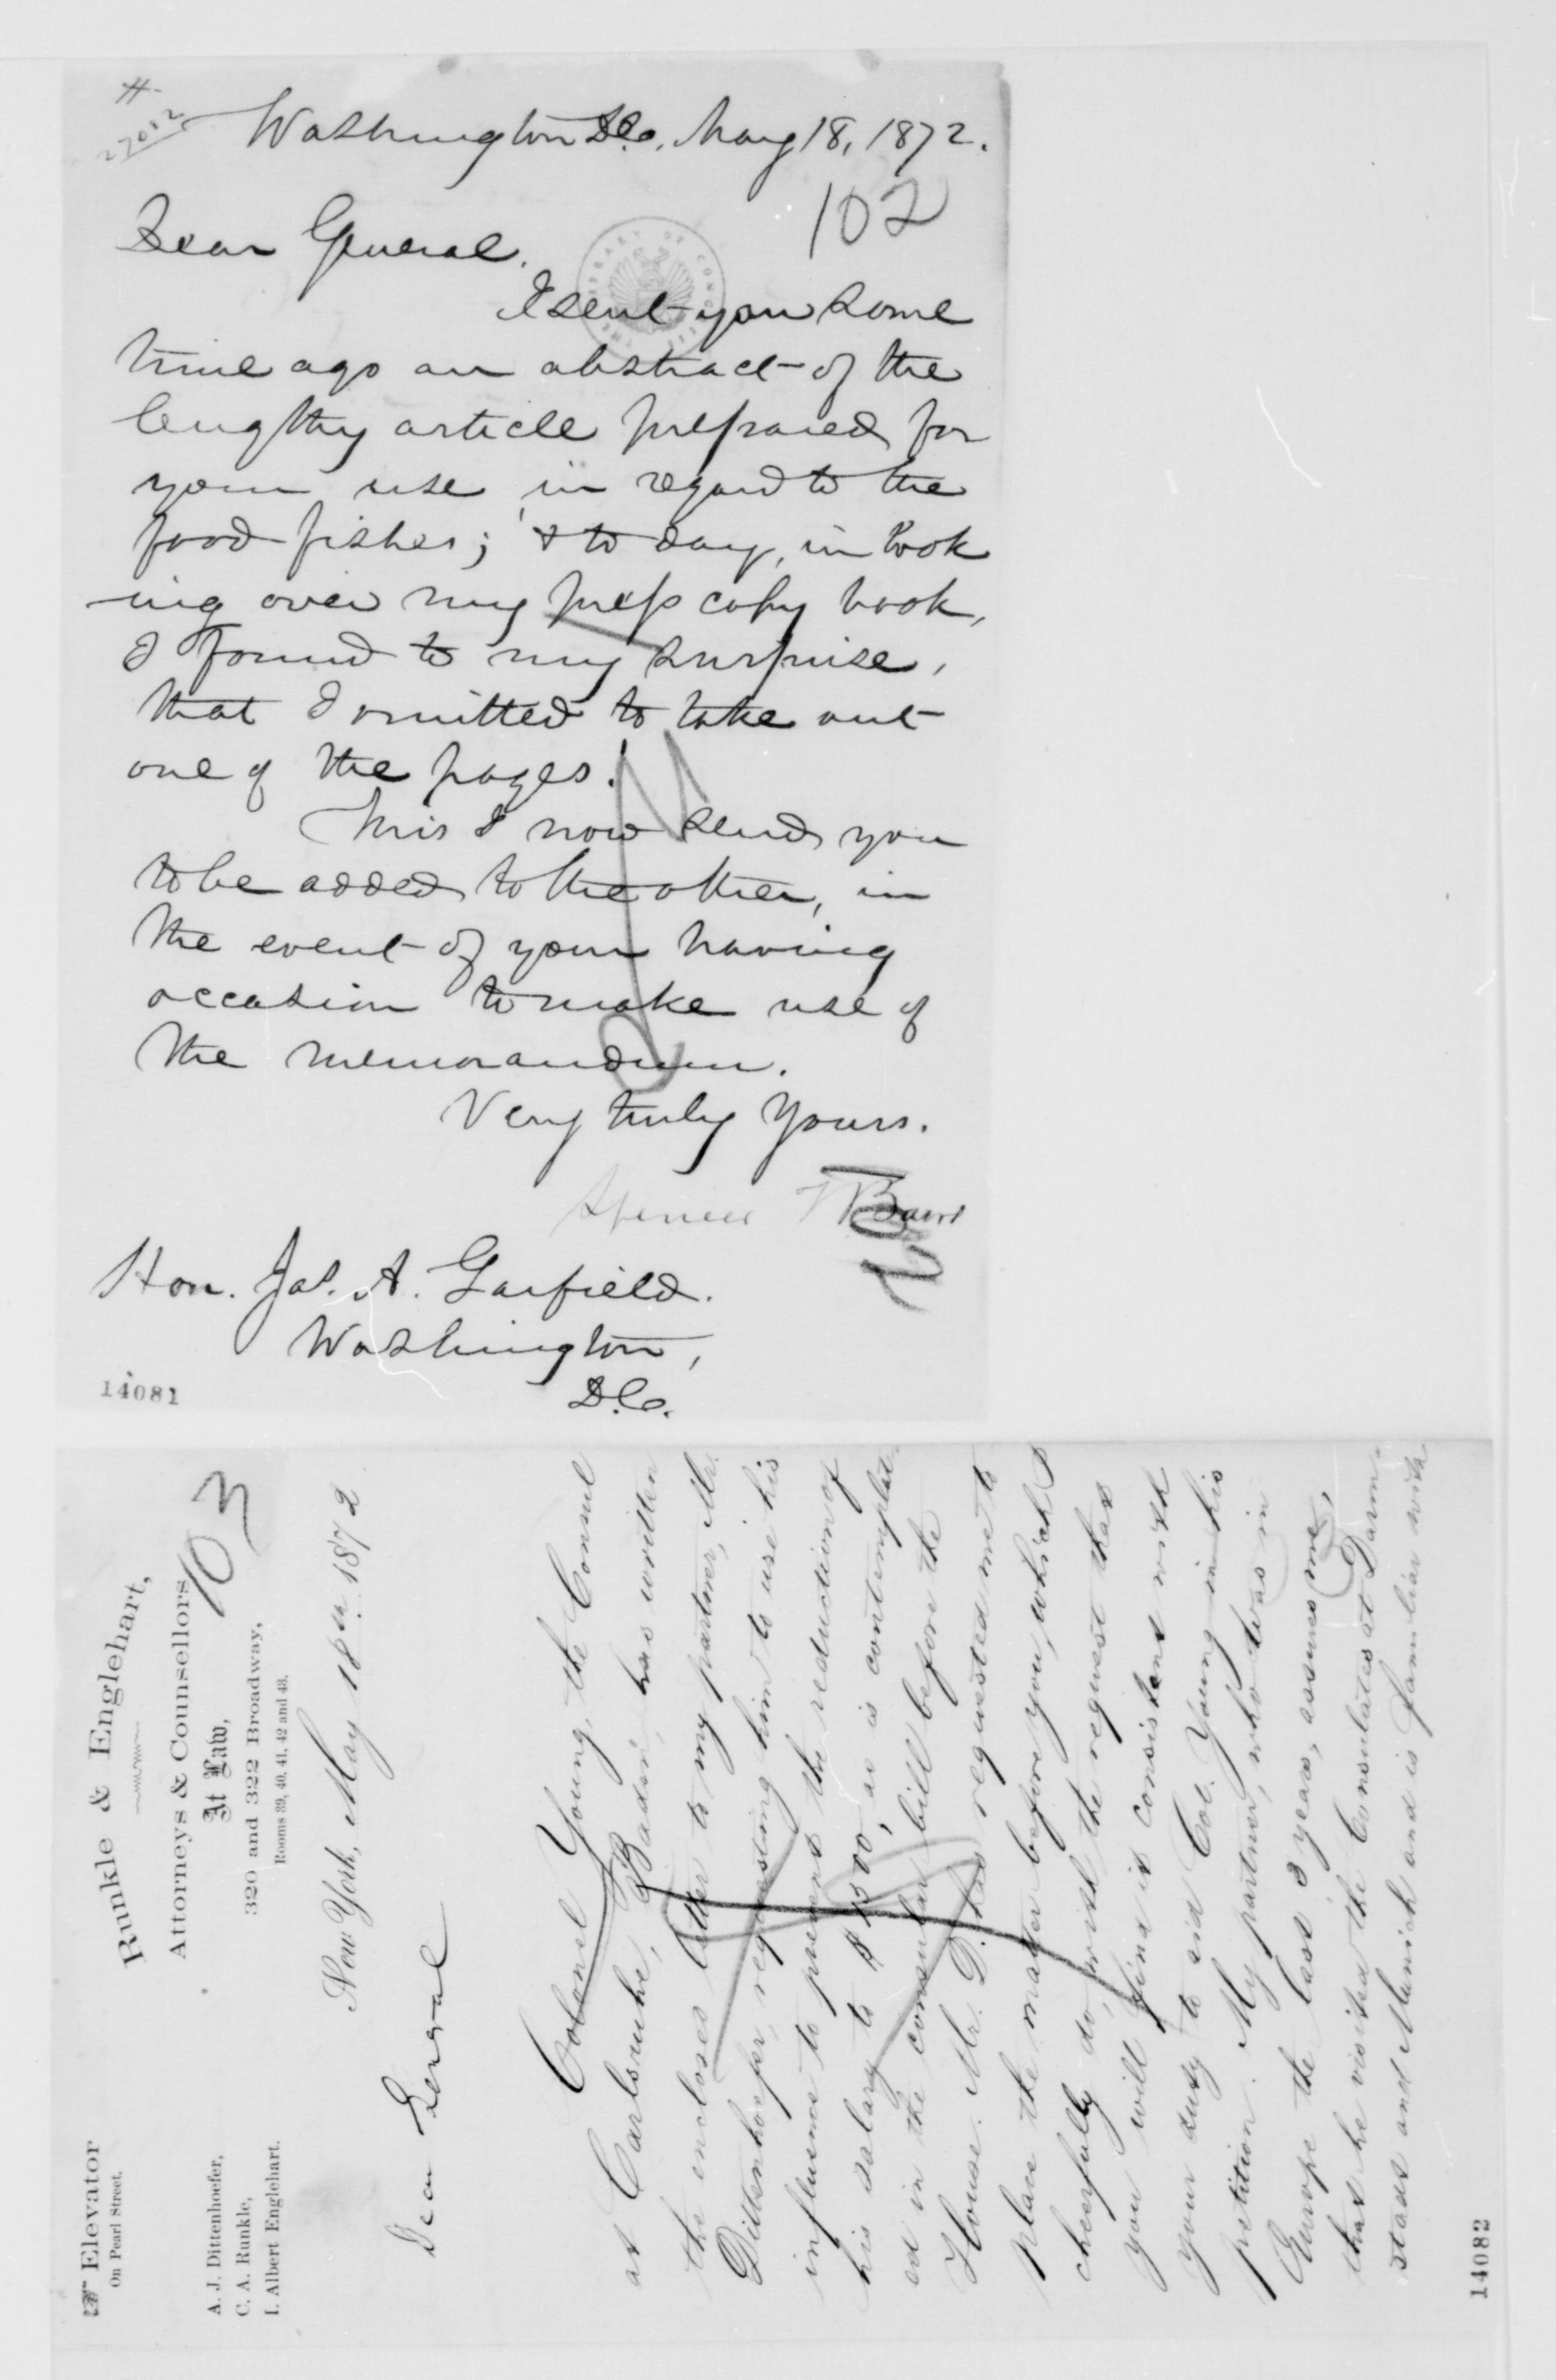 #
27012
Washington D.C. May 18, 1872.
102
Dear General.
I sent you some
time ago an abstract of the
lengthy article prepared for
your use, in regard to the
food fishes; & to day, in look
ing over my press copy book,
I found to my surprise,
that I omitted to take out
one of the pages.
This I now send you
to be added to the other, in
the event of your having
occasion to make use of
the memorandum.
Very truly Yours.
Spencer F Baird
Hon. Jas. A. Garfield.
Washington,
D.C.
14081
LIBRARY OF CONGRESS
103
Runkle & Englehart,
Attorneys & Counsellors
At Law,
320 and 322 Broadway,
Rooms 39, 40, 41, 42 and 43.
☞ Elevator
On Pearl Street.
A. J. Dittenhoefer,
C. A. Runkle,
I. Albert Englehart.
New York, May 18th 1872
Dear General
Colonel Young, the Consul
at Carlsruhe, Baden, has written
the enclosed letter to my partner, Mr.
Dittenhoefer, requesting him to use his
influence to prevent the reduction of
his salary to $1500, as is contemplat-
ed in the consular bill before the
House. Mr. D. has requested me to
place the matter before you, which I
cheerfully do, with the request that
you will find it consistent with
your duty to aid Col. Young in his
petition. My partner, who was in
Europe the last 3 years, assures me,
that he visited the Consulates at Darm-
stadt and Munich and is familiar with
14082